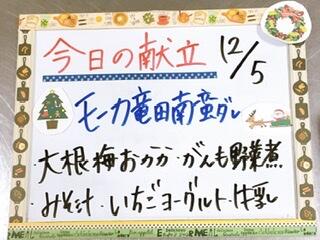 今日の献立 12/5
モーカ竜田南蛮ダレ
大根梅おかか・がんも野菜煮
・みそ汁・いちごヨーグルト・牛乳